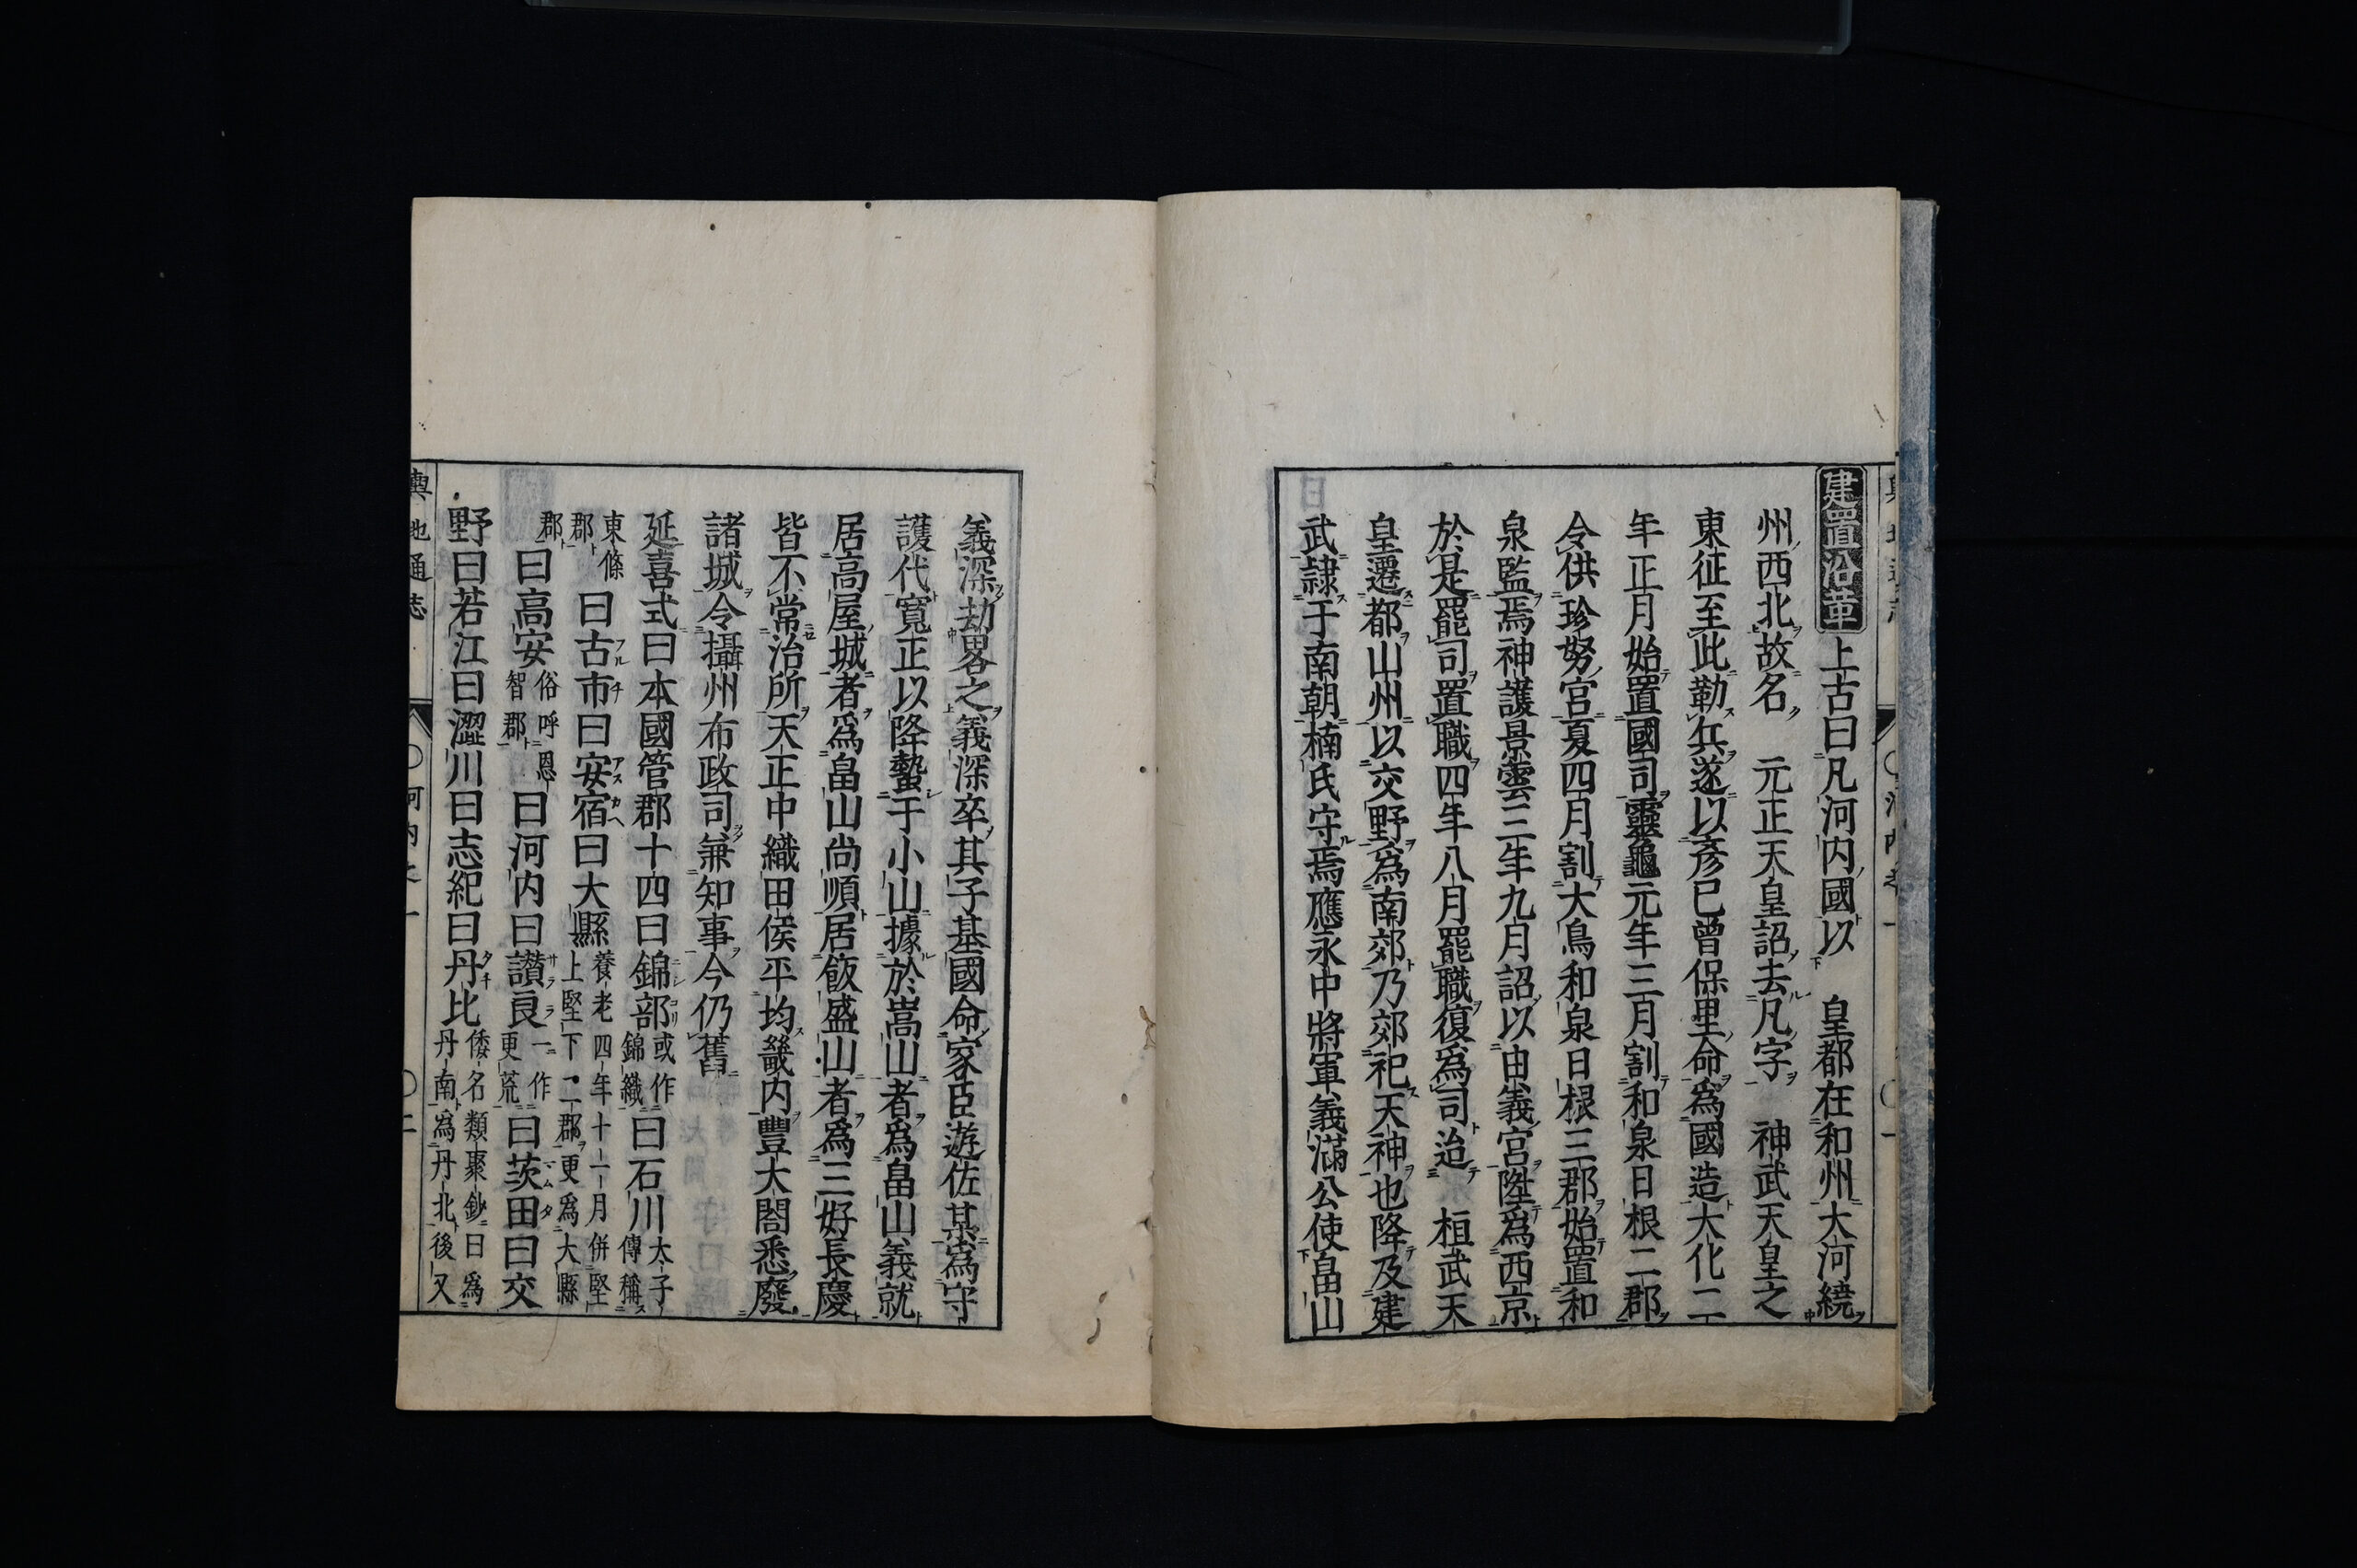 建置沿革上古曰凡河内國以　皇都在和州大河繞
州西北故名　元正天皇詔去凡字　神武天皇之
東征至此勒兵遂以彦己曾保里命爲國造大化二
年正月始置國司靈龜元年三月割和泉日根二郡
令供珍努宮夏四月割大鳥和泉日根三郡始置和
泉監焉神護景雲三年九月詔以由義宮陞爲西京
於是罷司置職四年八月罷職復爲司迨　桓武天
皇遷都山州以交野爲南郊乃郊祀天神也降及建
武隷于南朝楠氏守焉應永中將軍義滿公使畠山
義深劫畧之義深卒其子基國命家臣遊佐某爲守
護代寬正以降蟄于小山據於嵩山者爲畠山義就
居高屋城者爲畠山尚順居飯盛山者爲三好長慶
皆不常治所天正中織田侯平均畿内豐大閤悉廢
諸城令攝州布政司兼知事今仍舊
延喜式曰本國管郡十四曰錦部或作錦織曰石川太子傳稱
東條郡曰古市曰安宿曰大縣養老四年十一月併堅上堅下二郡更爲大縣
郡曰高安俗呼恩智郡曰河内曰讃良一作更荒曰茨田曰交
野曰若江曰澀川曰志紀曰丹比倭名類聚鈔曰爲丹南爲丹北後又
輿地通志　河内之一　二